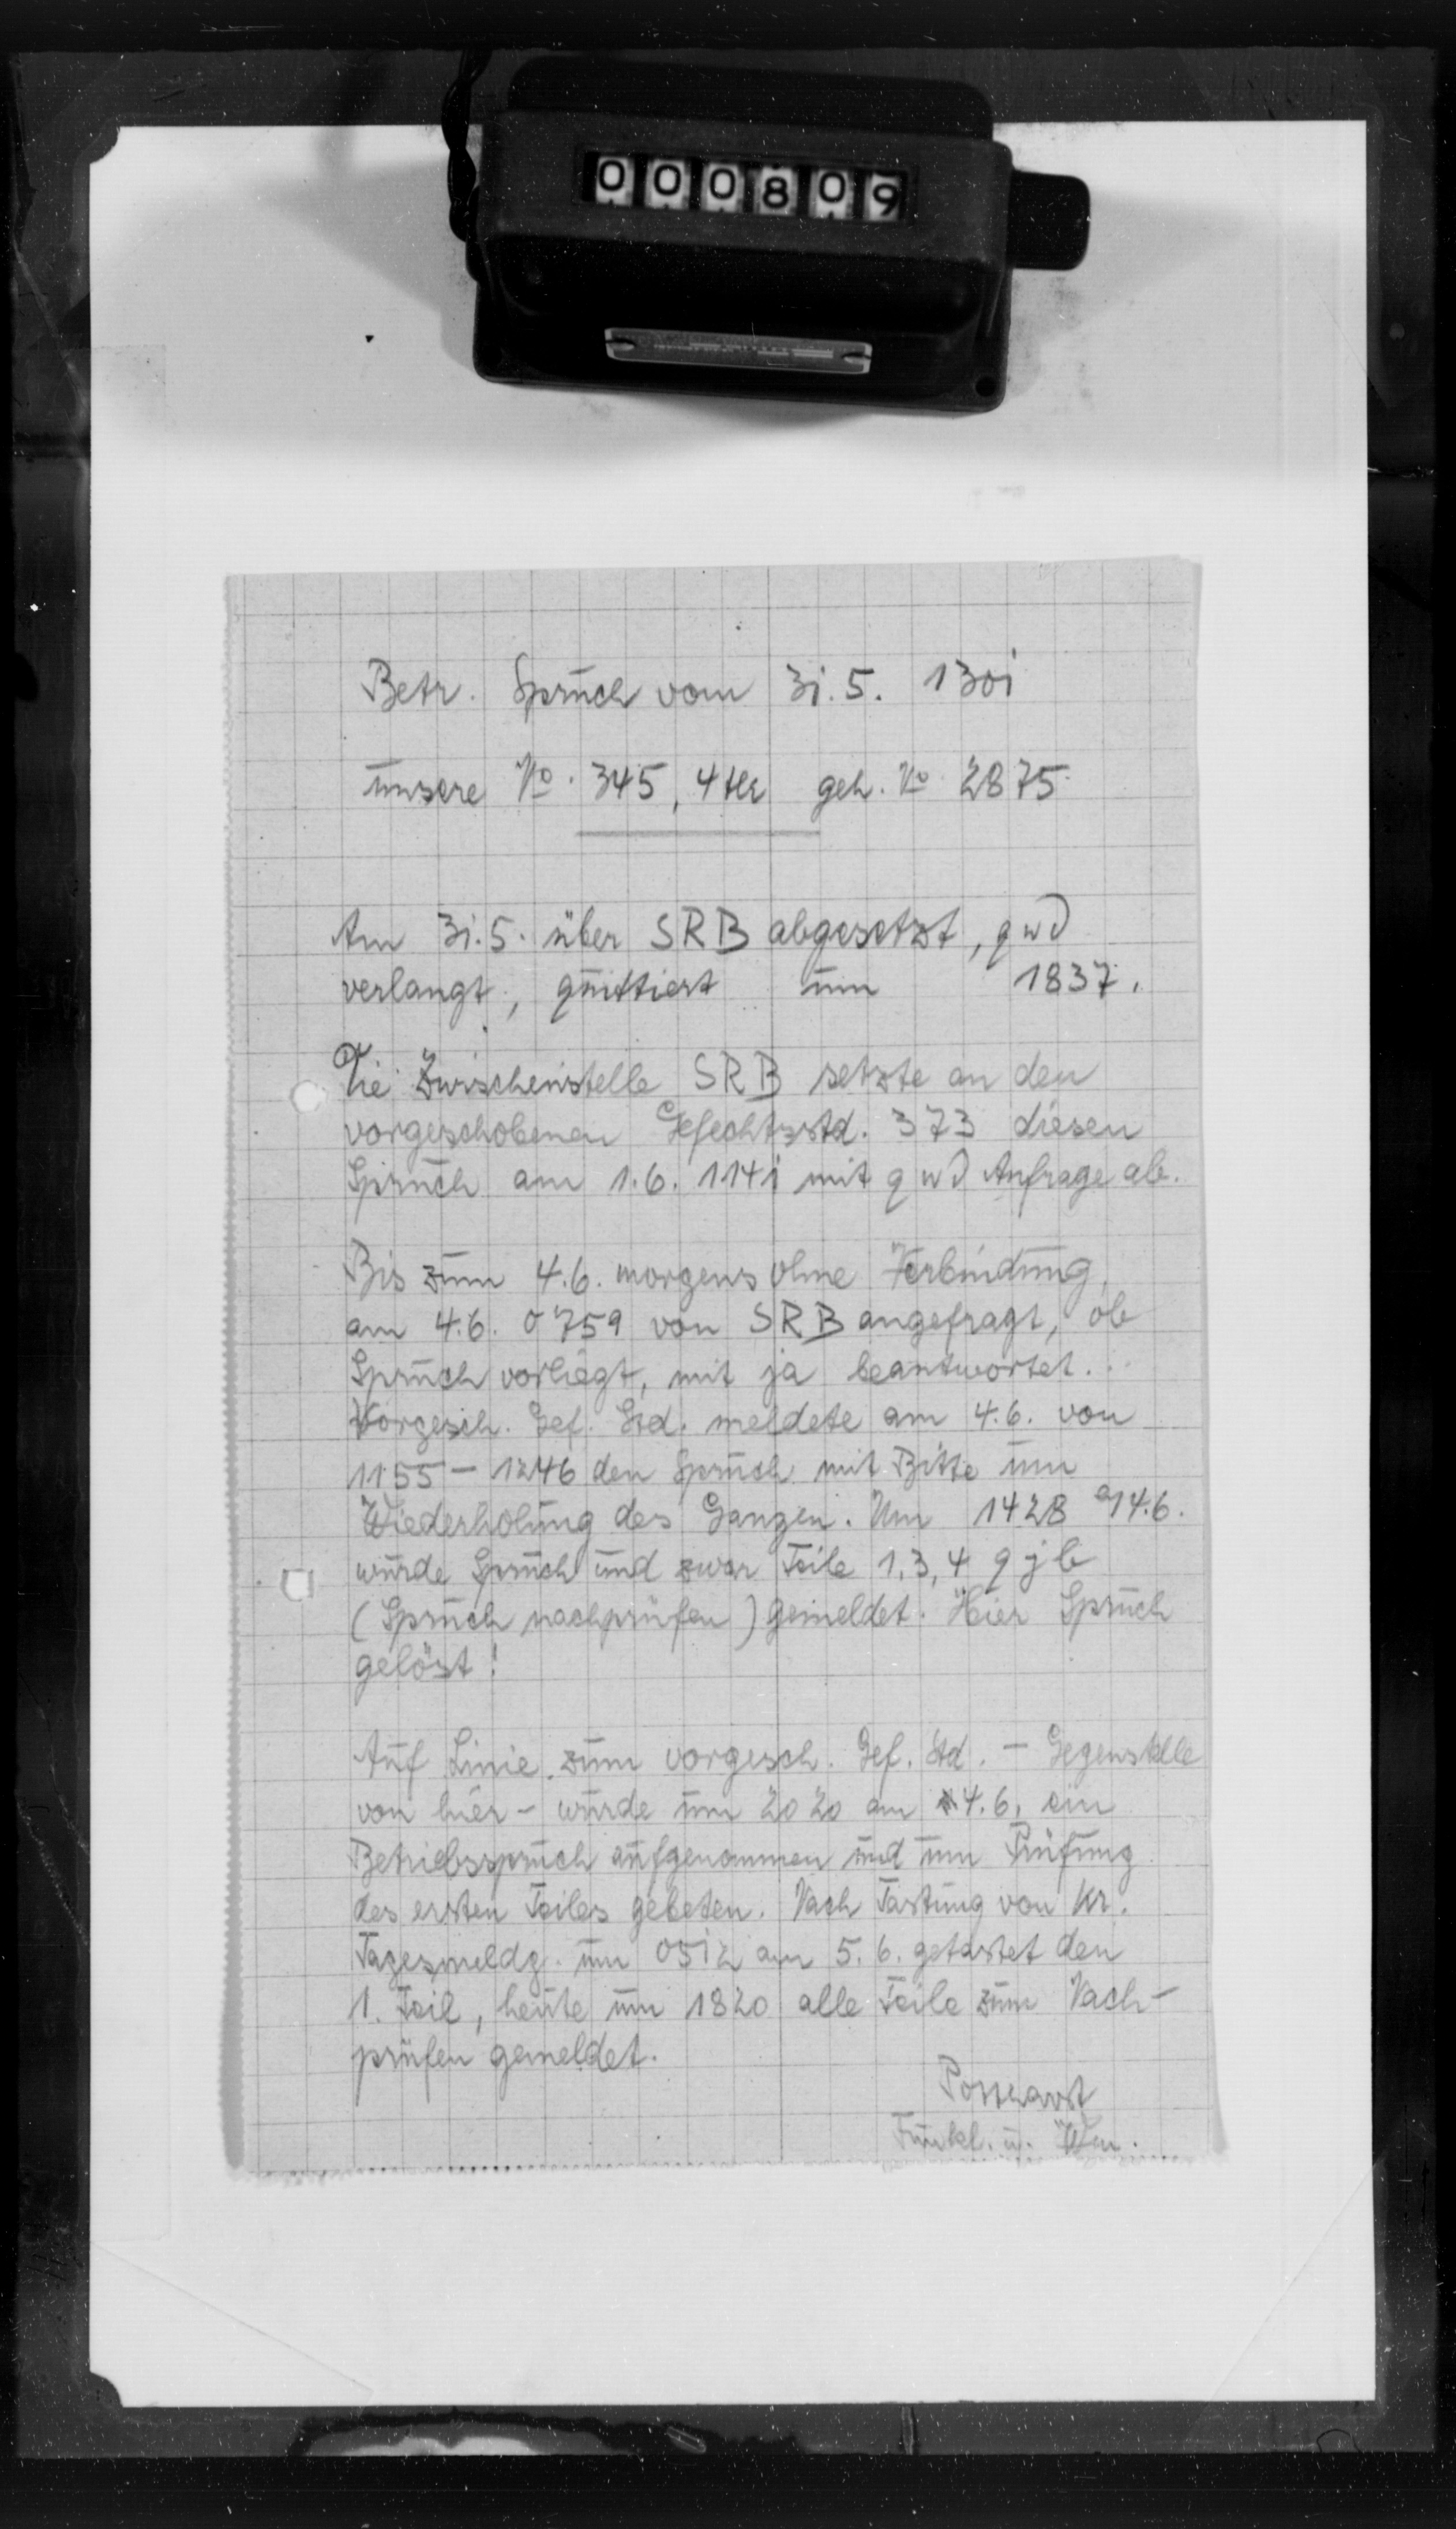 000809
Betr. Spruch vom 31.5. 1301
unsere No. 345, 4tlr geh. No 2875
Am 31.5. über SRB abgesetzt, qwd
verlangt, quittiert um 1837.
Die Zwischenstelle SRB setzte an den
vorgeschobenen Gefechtsstd. 373 diesen
Spruch am 1.6. 1141 mit qwd Anfrage ab.
Bis zum 4.6. morgens ohne Verbindung,
am 4.6. 0759 von SRB angefragt, ob
Spruch vorliegt, mit ja beantwortet.
Vorgesch. Gef. Std. meldete am 4.6. von
1155 - 1246 den Spruch mit Bitte um
Wiederholung des Ganzen. Um 1428 a/4.6.
wurde Spruch und zwar Teile 1,3,4 qjb
(Spruch nachprüfen) gemeldet. Hier Spruch
gelöst!
Auf Linie zum vorgesch. Gef. Std. - Gegenstelle
von hier - wurde um 2020 am 4.6. ein
Betriebsspruch aufgenommen und um Prüfung
des ersten Teiles gebeten. Nach Tastung von Kr.
Tagesmeldg. um 0512 am 5.6. getastet den
1. Teil, heute um 1820 alle Teile zum Nach-
prüfen gemeldet.
Funkl. u.